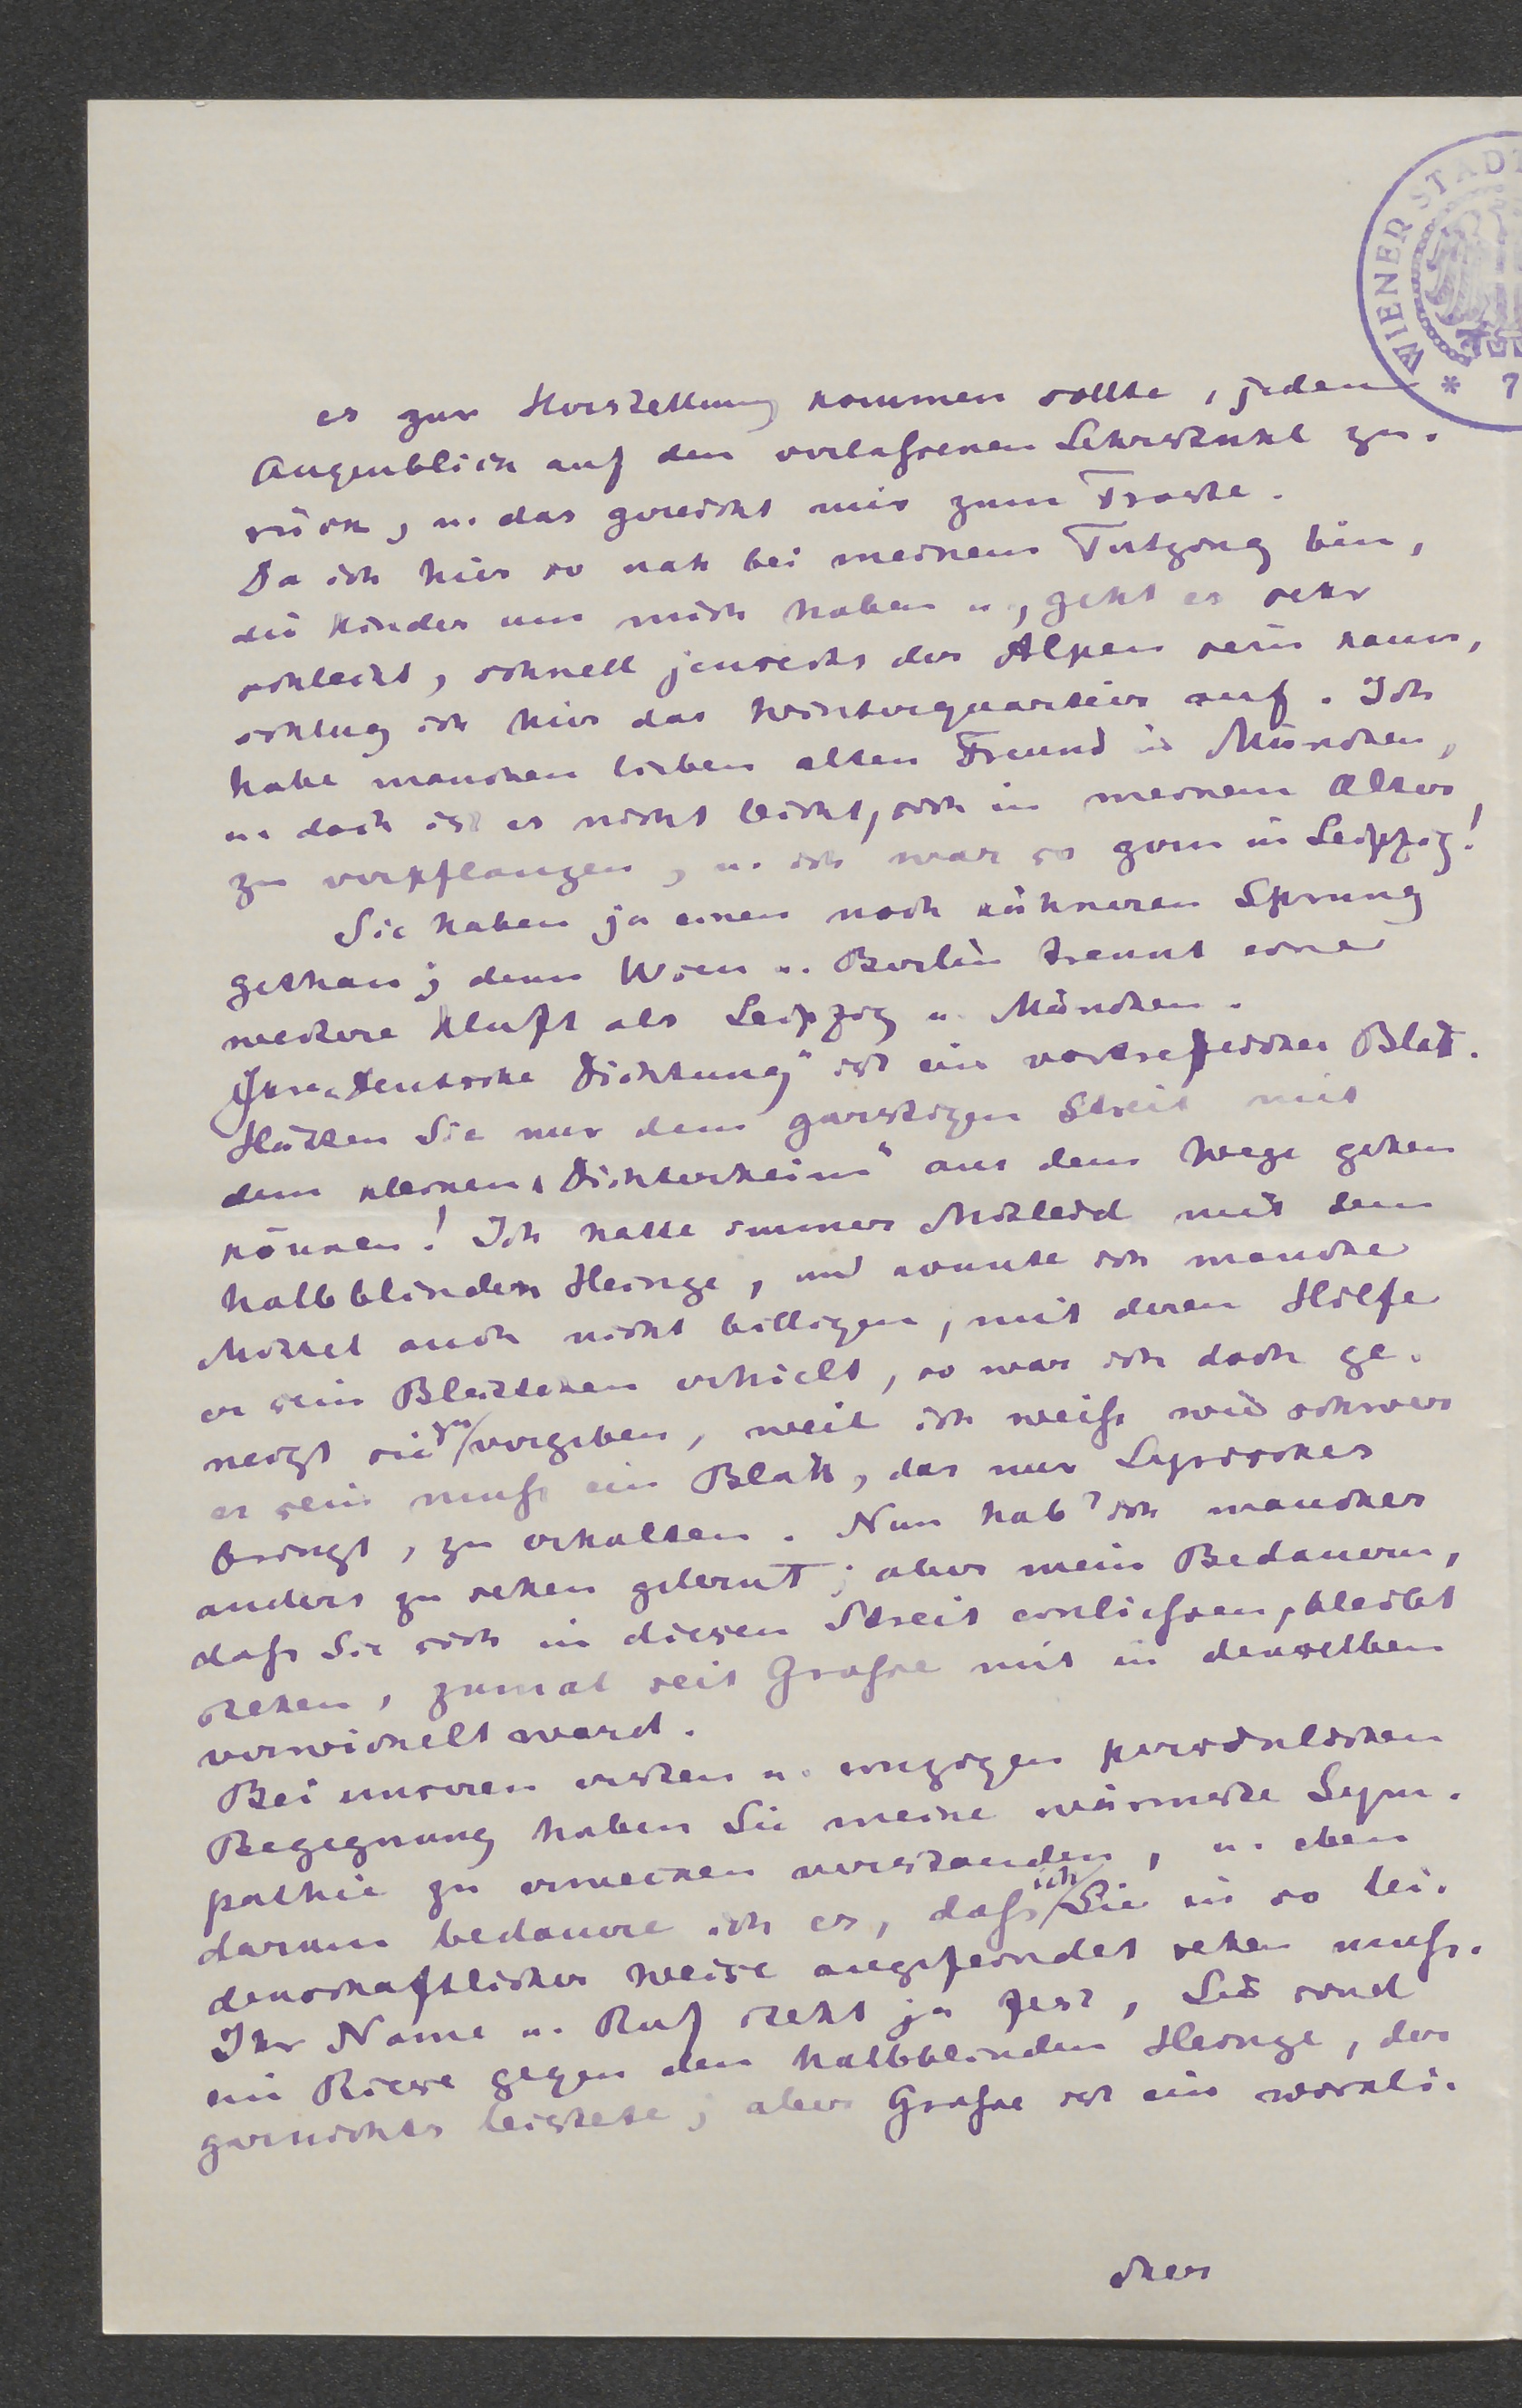 WIENER STADT
* 7
es zur Herstellung kommen sollte, jeden
Augenblick auf den verlaßenen Lehrstuhl zu-
rück, u. das gereicht mir zum Troste.
Da ich hier so nah bei meinem Tutzing bin,
die Kinder um mich haben u., geht es sehr
schlecht, schnell jenseits der Alpen sein kann,
schlug ich hier das Winterquartier auf. Ich
habe manchen lieben alten Freund in München,
u. doch ist es nicht leicht, sich in meinem Alter
zu verpflanzen, u. ich war so gern in Leipzig!
Sie haben ja einen noch kühneren Sprung
gethan; denn Wien u. Berlin trennt eine
weitere Kluft als Leipzig u. München.
Ihre „Deutsche Dichtung“ ist ein vortrefflicher Blatt.
Hätten Sie nur dem garstigen Streit mit
dem kleinen „Dichterheim“ aus dem Wege gehen
können! Ich hatte immer Mitleid mit dem
halbblinden Heinze, und konnte ich manche
Mittel auch nicht billigen, mit deren Hilfe
er sein Blättchen erhielt, so war ich doch ge-
neigt sie zu vergeben, weil ich weiß wie schwer
es sein muß ein Blatt, das nur Lyrisches
bringt, zu erhalten. Nun hab' ich manches
anders zu sehen gelernt; aber mein Bedauern,
daß Sie sich in diesen Streit einließen, bleibt
stehen, zumal seit Große mit in denselben
verwickelt ward.
Bei unserer ersten u. einzigen persönlichen
Begegnung haben Sie meine wärmste Sym-
pathie zu erwecken verstanden, u. eben
darum bedauere ich es, daß ich Sie in so lei-
denschaftlicher Weise angefeindet sehen muß.
Ihr Name u. Ruf steht ja fest, Sie sind
ein Riese gegen den halbblinden Heinze, der
garnichts leistete; aber Große ist ein wirkli-
cher